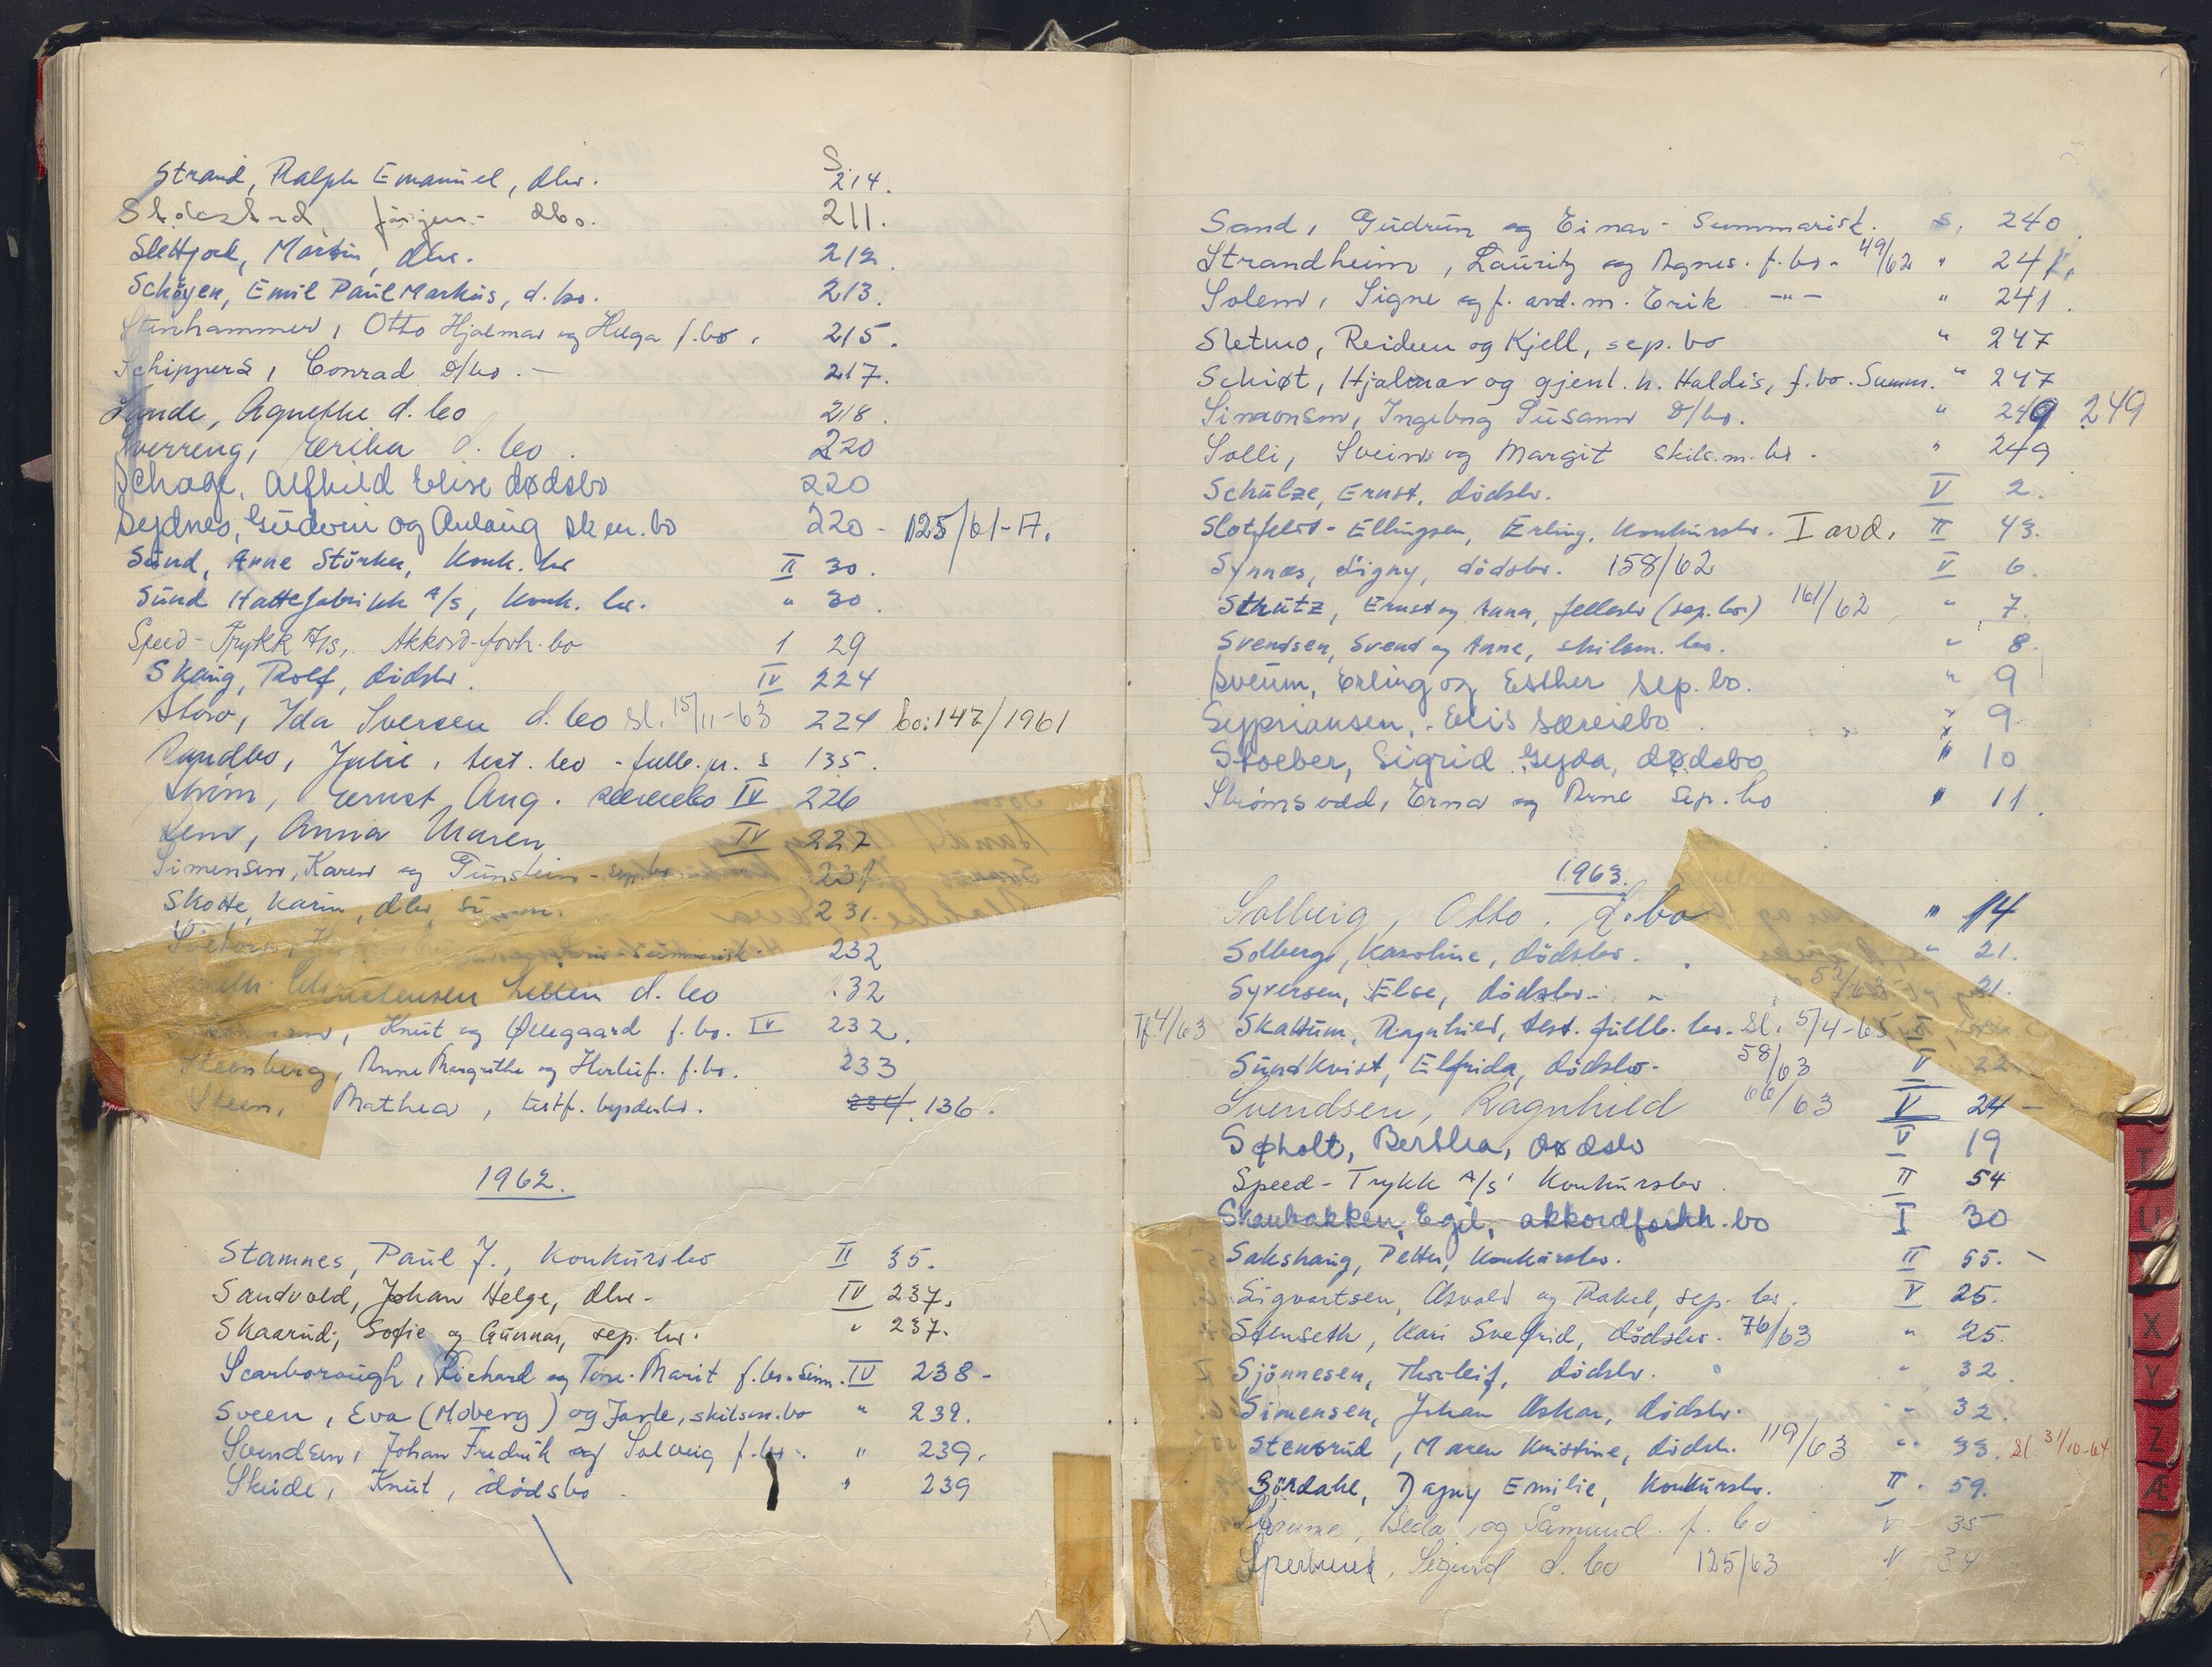 S.
Strand, Ralph Emanuel, dbo. 214.
Jörgen - dbo. 211.
Slettjord, Martin, dbo. 212.
Schøyen, Emil Paul Markus, d.bo. 213.
Stenhammer, Otto Hjalmar og Helga f.bo. 215.
Schippers, Conrad d/bo. - 217.
Sande, Agnethe d. bo 218.
Sverreng, Erika d. bo. 220
Schage, Alfhild Elise dødsbo 220
Sydnes, Gudrun og Anlaug sk.m.bo 220 - 125/61-A.
Sund, Anne Störker, Konk. bo II 30.
Sund Hattefabrikk A/S, Konk. bo. " 30.
Speed-Trykk A/S, Akkord-forh.bo 1 29
Skaug, Rolf, dödsbo. IV 224
Ida Iversen d. bo sl. 15/11-63 224 bo: 147/1961
Sandbo, Julie, test. bo - fullb. pr. s 135.
Strøm, Ernst Aug. særeiebo IV 226
Anna Maren IV 227
Simensen, Karen og Gunstein - sep.bo. 231
Skotte, Karin, dbo summ. 231.
summarisk. 232
d. bo 232
Knut og Øllegaard f.bo. IV 232.
Steenberg, Anne Margrethe og Herluf. f.bo. 233
Steen, Mathea, testf. 234. 136.
1962.
Stamnes, Paul J., Konkursbo II 35.
Sandvold, Johan Helge, dbo - IV 237.
Skaarud, Sofie og Gunnar, sep. bo. " 237.
Scarborough, Richard og Tone-Marit f.bo.-Sum. IV 238 -
Sveen, Eva (Moberg) og Jarle, skilsm.bo " 239.
Svendsen, Johan Fredrik og Solveig f.bo. " 239.
Skeide, Knut, dødsbo. " 239
Sand, Gudrun og Einar - Summarisk. s. 240.
Strandheim, Lauritz og Agnes. f.bo. 49/62 " 241.
Solem, Signe og f. avd. m. Erik -"- " 241.
Sletmo, Reidun og Kjell, sep. bo " 247
Schiøt, Hjalmar og gjenl. h. Haldis, f.bo. Summ. " 247
Simonsen, Ingeborg Susann d/bo. " 249 249
Solli, Svein og Margit skils.m. bo. " 249
Schulze, Ernst, dödsbo. V 2.
Slotfeldt-Ellingsen, Erling, Konkursbo. I avd. II 43.
Synnæs, Signy, dödsbo. 158/62 V 6.
Stautz, Ernst og Anna, fellesbo (sep.bo) 161/62 " 7.
Svendsen, Svend og Anne, skilsm. bo. " 8.
Sveum, Erling og Esther sep. bo. " 9
Sypriansen, Elis særeiebo " 9
Stoeber, Sigrid Gyda, dødsbo " 10
Strømsodd, Erna og Arne Sep. bo " 11.
1963.
Solberg, Otto. d.bo " 14
Solberg, Karoline, dödsbo. " 21.
Syversen, Else, dödsbo. 52/63 21.
Tf. 4/63 Skattum, Ragnhild, test. fullb. bo. Sl. 5/4-65
Sundkvist, Elfrida, dödsbo. 58/63 V 22.
Svendsen, Ragnhild 66/63 V 24 -
Søholt, Berthea, dødsbo V 19
Speed-Trykk A/S Konkursbo. II 54
Skaubakken, Egil, akkordforhh.bo I 30
Sakshaug, Petter, Konkursbo. II 55. -
Sigvartsen, Asvald og Rakel, sep. bo. V 25.
Stenseth, Kari Svefrid, dödsbo. 76/63 " 25.
Sjönnesen, Thorleif, dödsbo. " 32.
Simensen, Johan Oskar, dödsbo. " 32.
Stensrud, Maren Kristine, dödsb. 119/63 " 33. Sl. 31/10-64
Sördahl, Dagny Emilie, Konkursbo. II 59.
Beda og Såmund. f. bo V 35
Sigurd d. bo 125/63 V 34